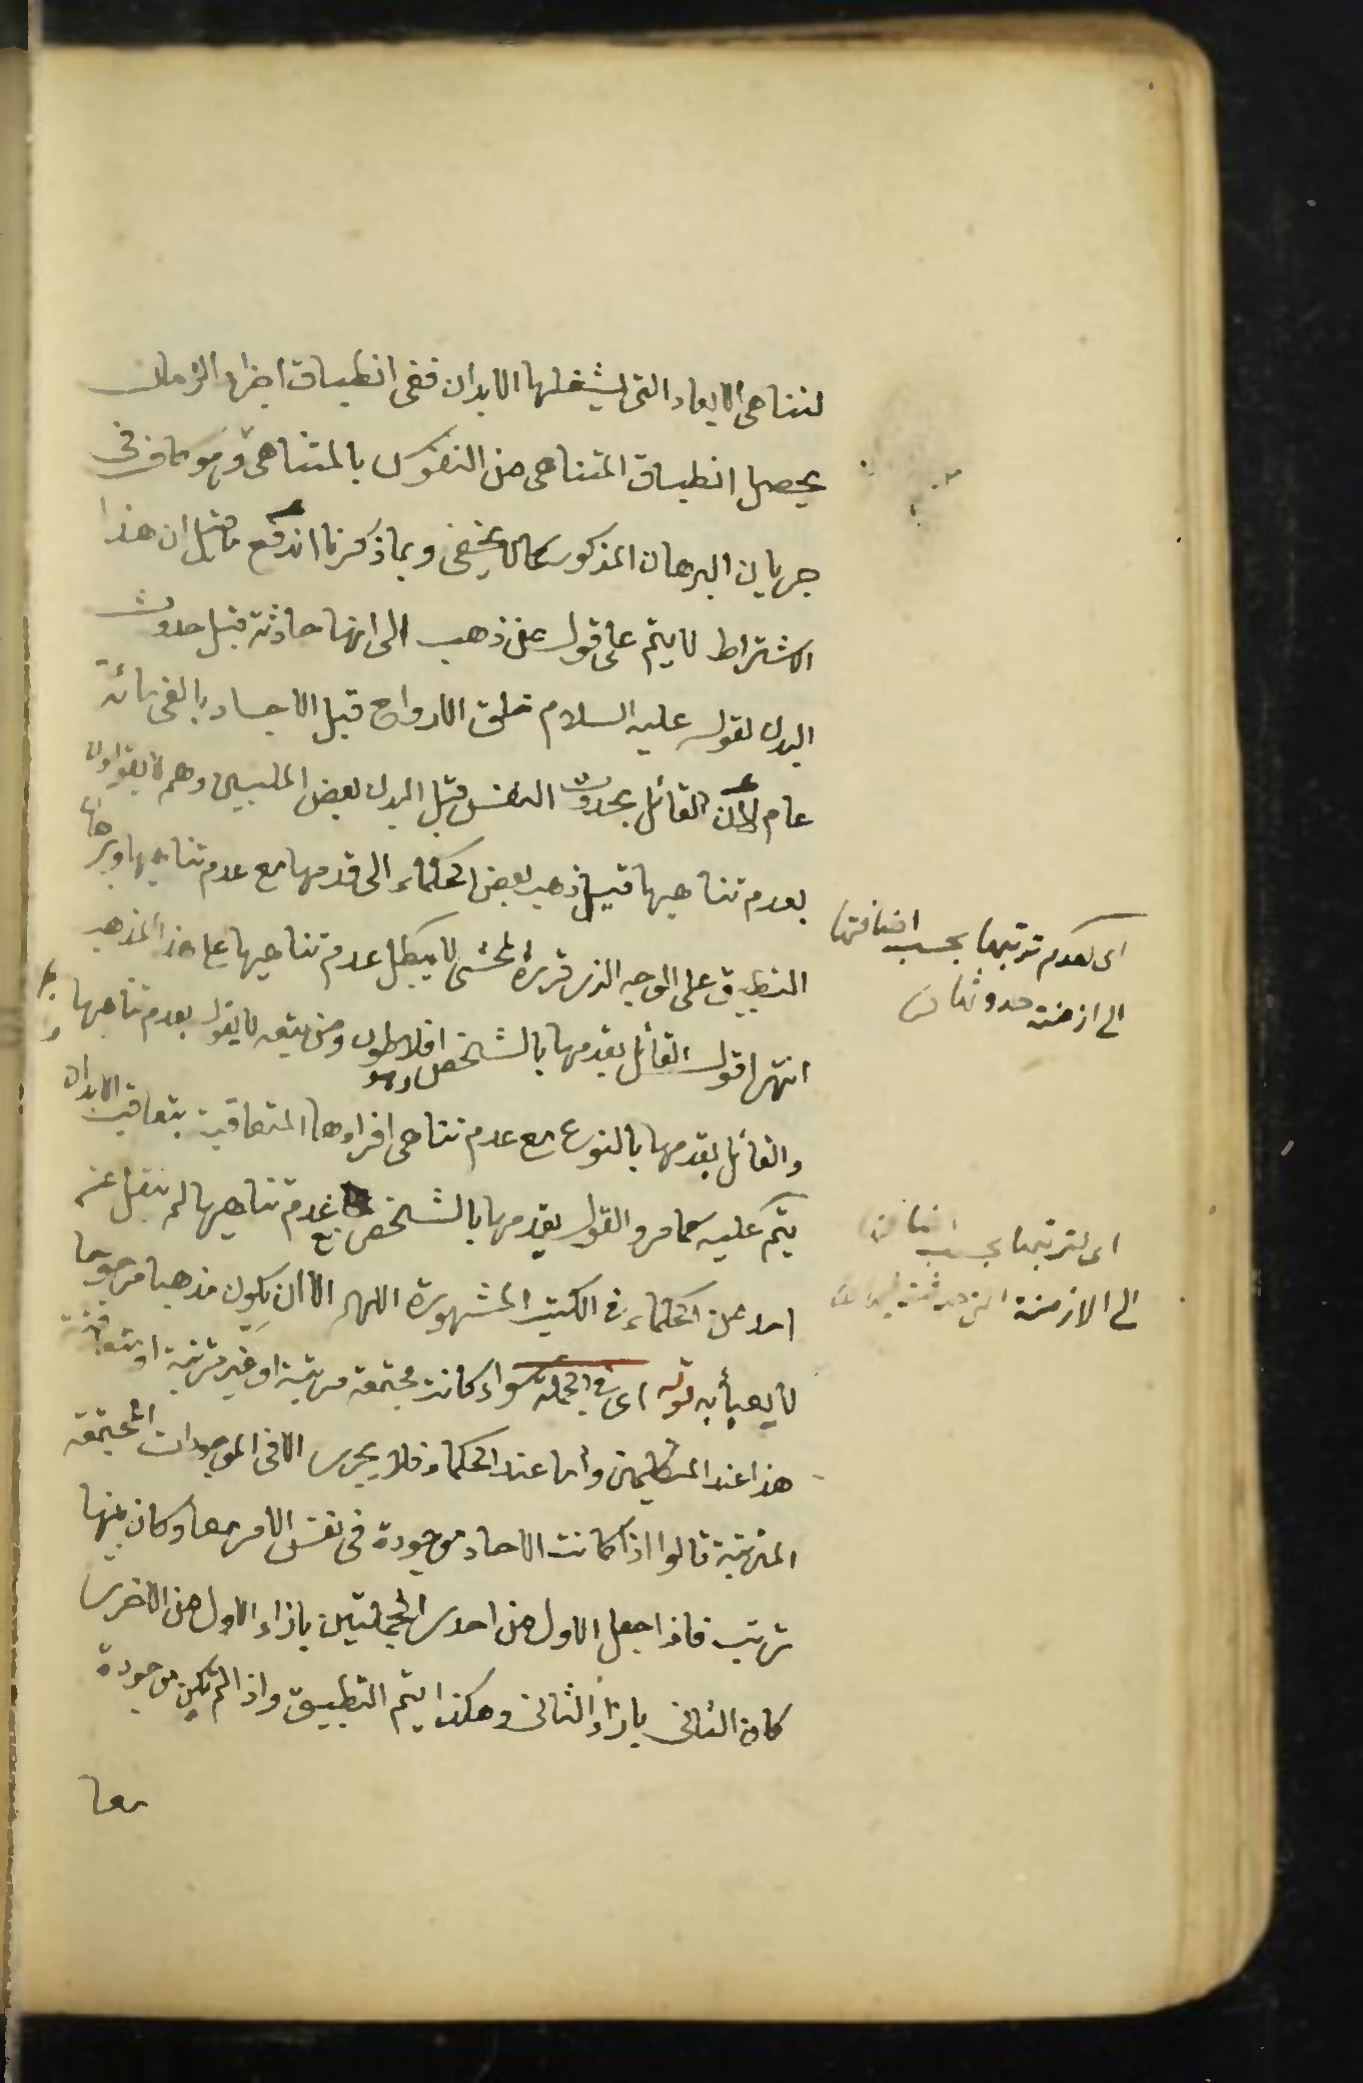 لتناهى الابعاد التى يشغلها الابدان ففى انطباق اجزاء الزمان
يحصل انطباق المتناهى من النفوس بالمتناهى وهو كاف فى
جريان البرهان المذكور كما لا يخفى وبما ذكرنا اندفع ما قيل ان هذا
الاشتراط لا يتم على قول من ذهب الى انها حادثة قبل حدوث
البدن لقوله عليه السلام خلق الارواح قبل الاجساد بالفى مائة
عام لان القائل بحدوث النفس قبل البدن بعض المليين وهم لا يقولون
بعدم تناهيها قيل ذهب بعض الحكماء الى قدمها مع عدم تناهيها وبرهان
التطبيق على الوجه الذى قرره المحشى لا يبطل عدم تناهيها على هذا المذهب
انتهى اقول القائل بقدمها بالشخص وهو افلاطون ومن يتبعه لا يقول بعدم تناهيها
والقائل بقدمها بالنوع مع عدم تناهى افرادها المتعاقبة بتعاقب الابدان
يتم عليه كما مر والقول بقدمها بالشخص مع عدم تناهيها لم ينقل عن
احد من الحكماء فى الكتب المشهورة اللهم الا ان يكون مذهبا مرجوحا
لا يعبأ به قوله اى فى الجملة سواء كانت مجتمعة مرتبة او غير مرتبة او متعاقبة
هذا عند المتكلمين واما عند الحكماء فلا يجرى الا فى الموجودات المجتمعة
المترتبة قالوا اذا كانت الاحاد موجودة فى نفس الامر معا وكان بينها
ترتب فاذا جعل الاول من احدى الجملتين بازاء الاول من الاخرى
كان الثانى بازاء الثانى وهكذا يتم التطبيق واذا لم تكن موجودة
معا
اى لعدم ترتبها بحسب اضافتها
الى ازمنة حدوثها
اى لترتبها بحسب اضافتها
الى الازمنة التى حدثت فيها